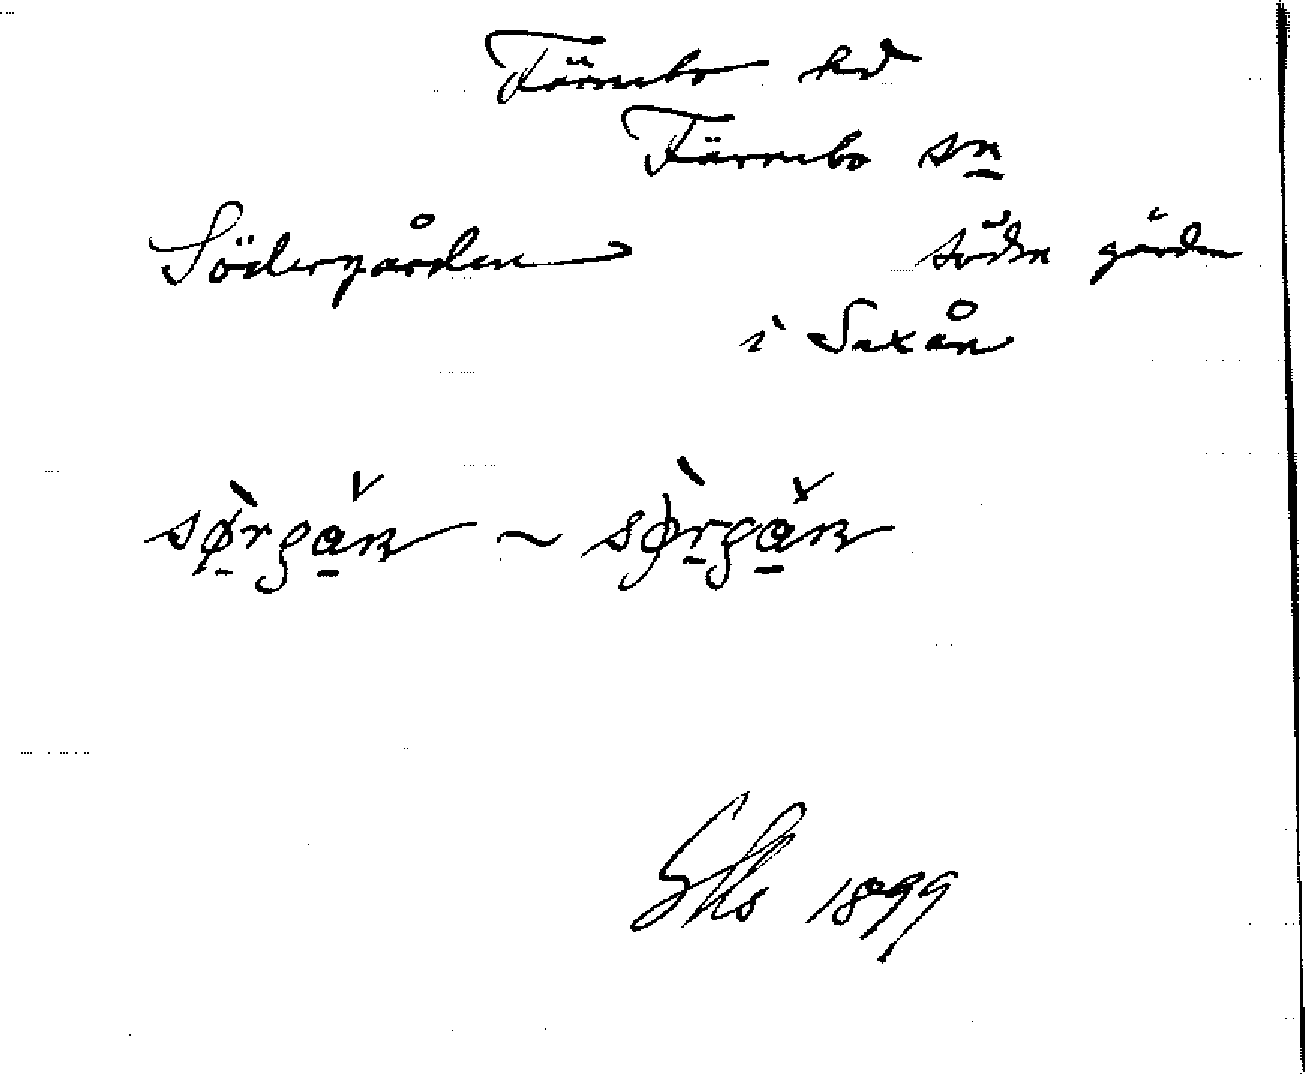 Färnebo hd
Färnebo sn
Södergården södra gården
i Saxån
sø̀rgån ~ sø̀rgån
1899